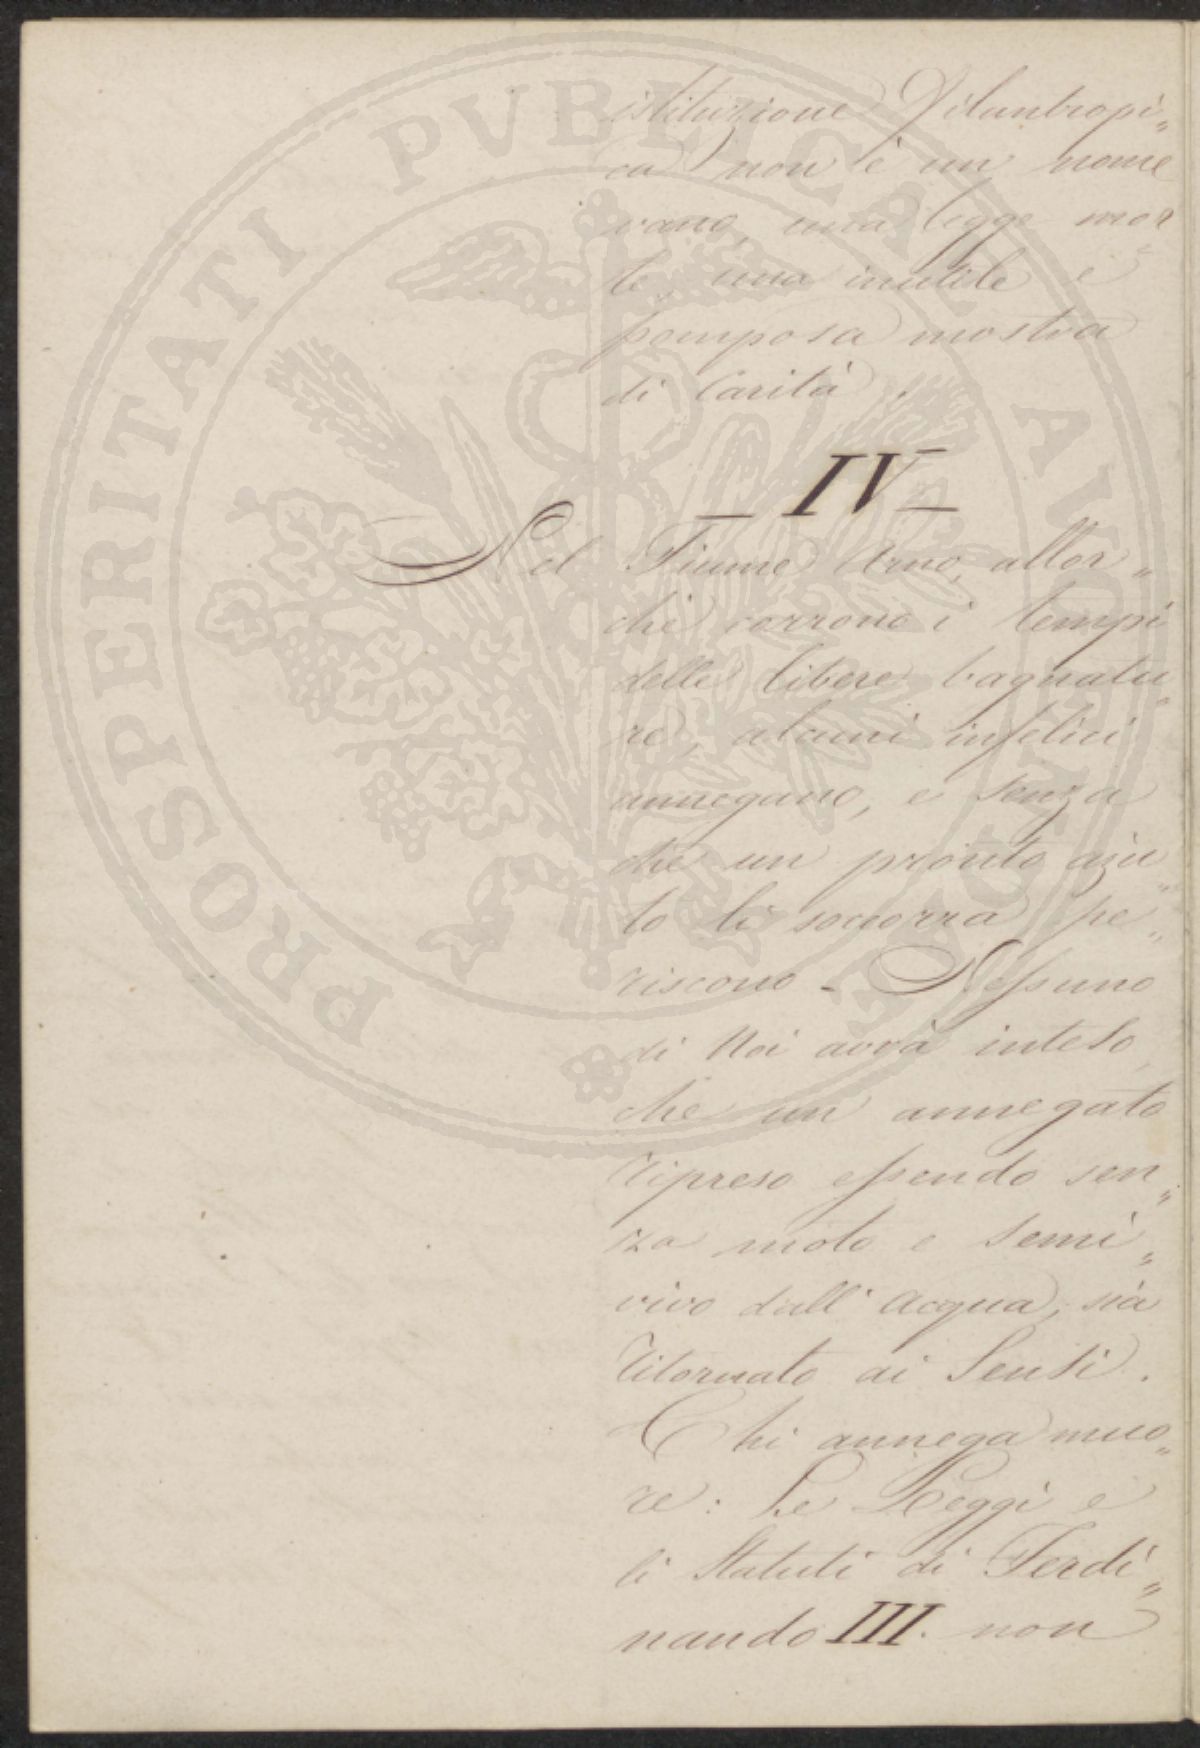 istituzione Filantropi„
ca non è un nome
vano, una legge mor„
te, una inutile e
pomposa mostra
di Carità.
— IV —
Nel Fiume Arno, allor„
chè corrono i tempi
delle libere bagnatu„
re, alcuni infelici
annegano, e senza
che un pronto aju„
to li soccorra pe„
riscono - Nessuno
di Noi avrà inteso,
che un annegato
ripreso essendo sen„
za moto e semi„
vivo dall'Acqua, sia
ritornato ai Sensi.
Chi annega muo„
re: Le Leggi e
li Statuti di Ferdi„
nando III. non
PROSPERITATI PVBLICAE AVGENDAE